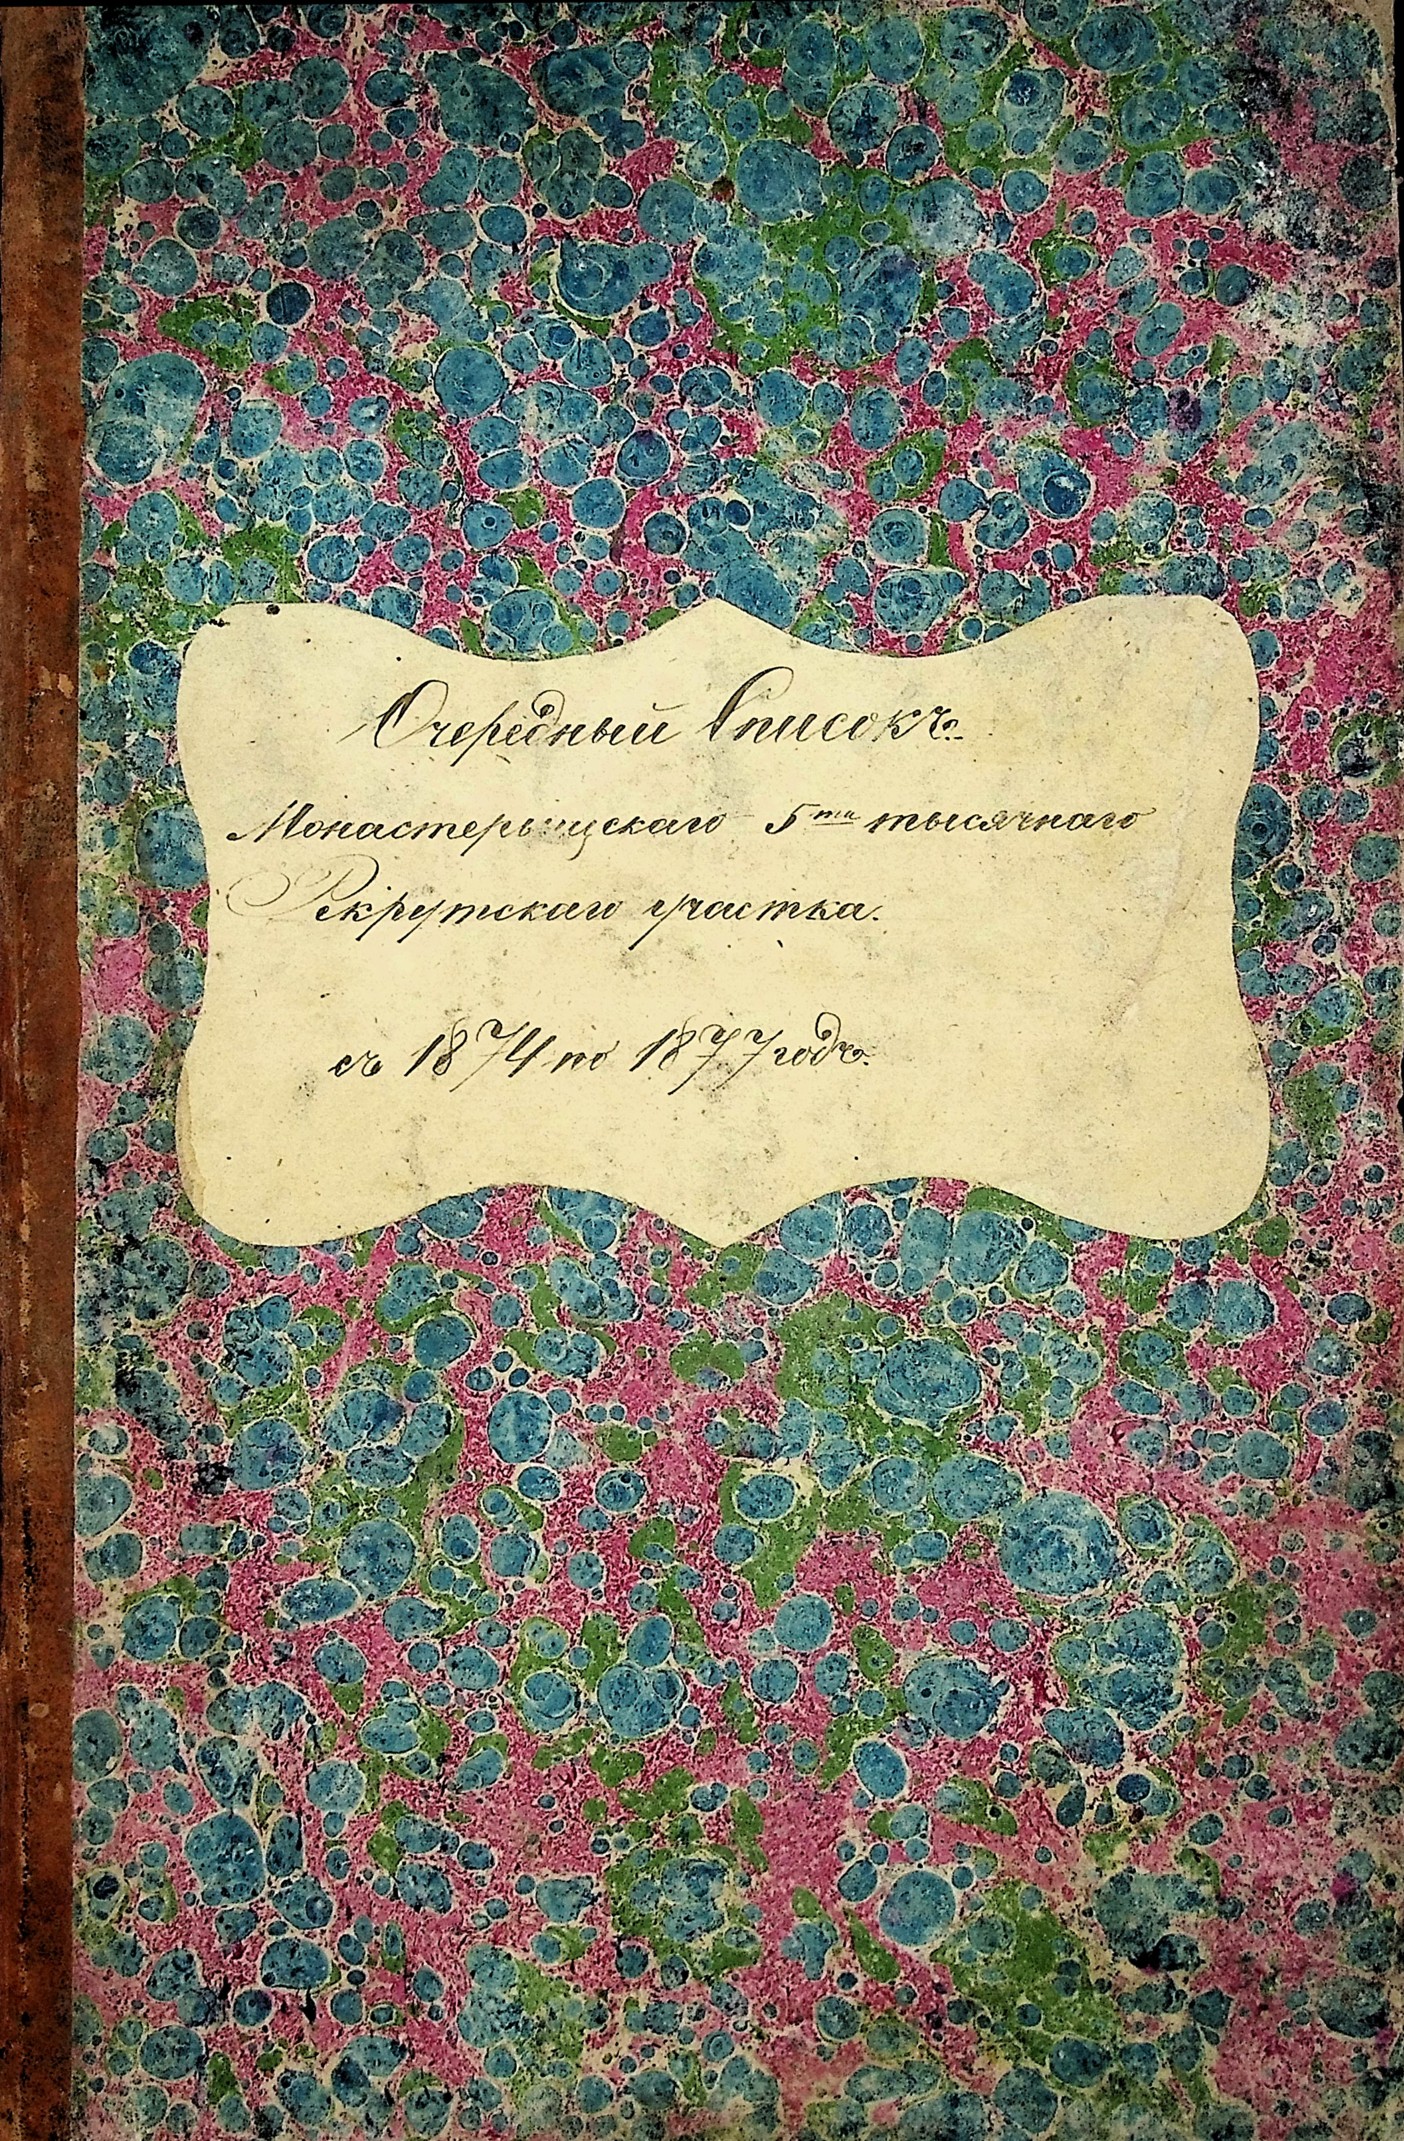 Очередный Списокъ
Монастерыщскаго 5ти тысячнаго
Рекрутскаго участка.
съ 1874 по 1877 годъ.